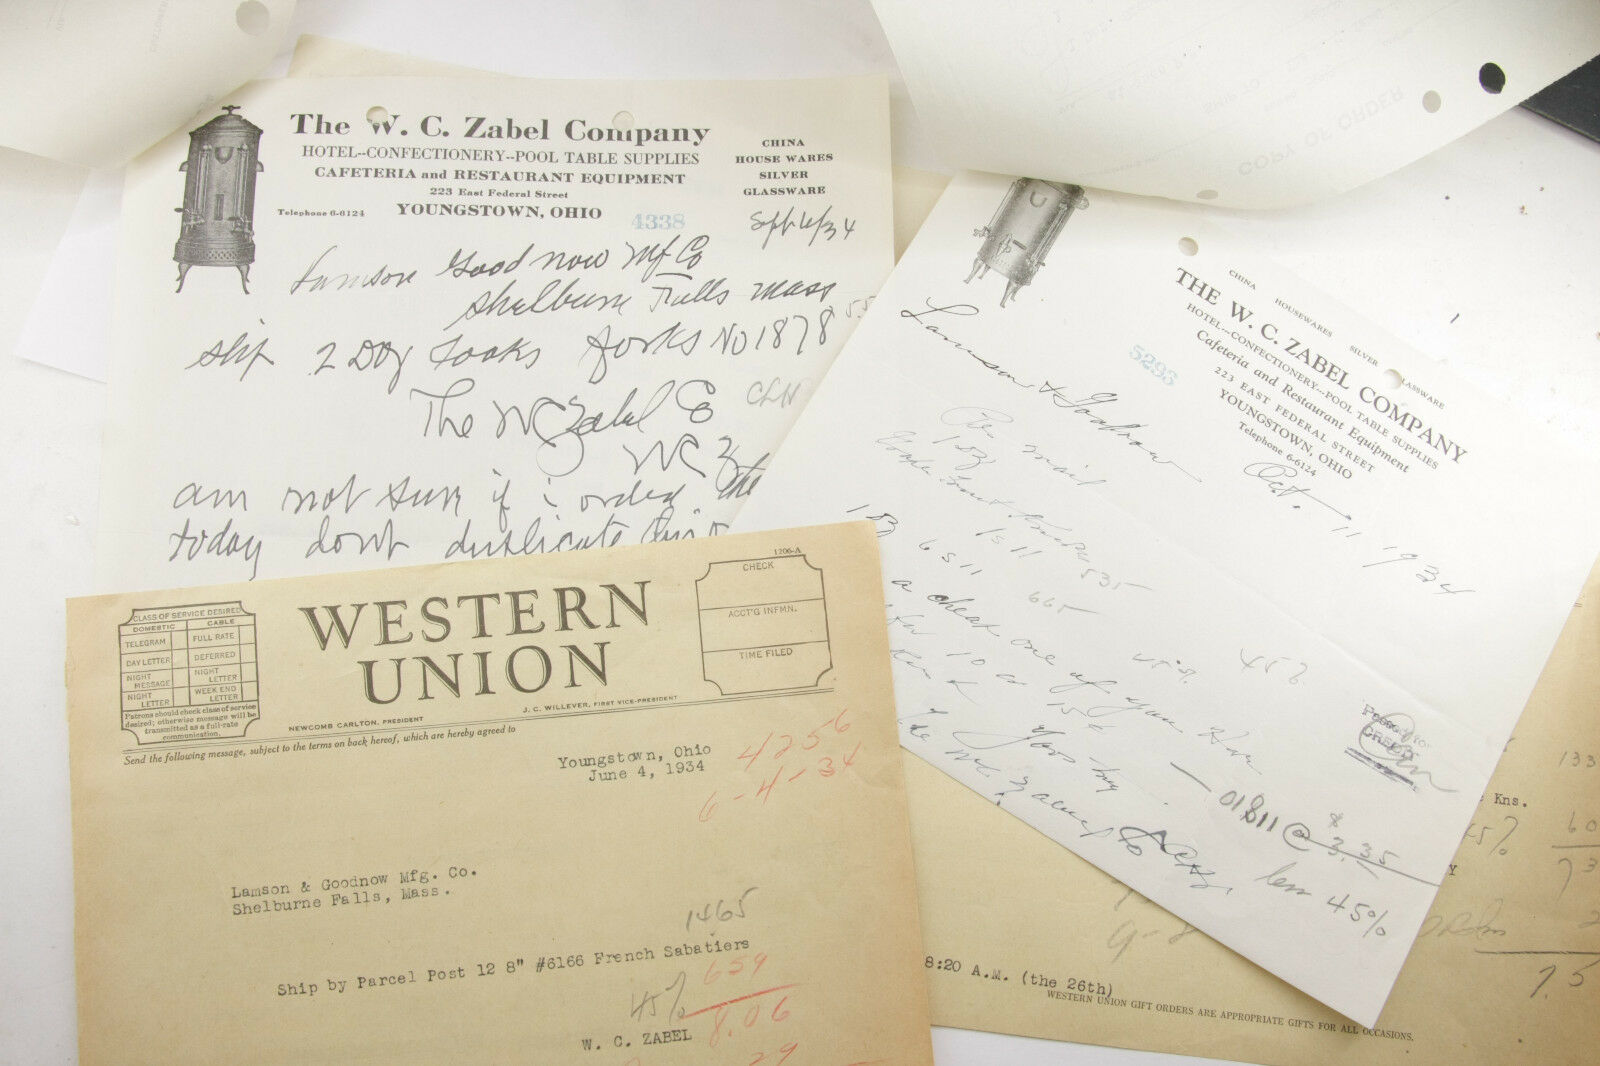 The W. C. Zabel Company
HOTEL--CONFECTIONERY--POOL TABLE SUPPLIES
CAFETERIA and RESTAURANT EQUIPMENT
223 East Federal Street
Telephone 6-6124 YOUNGSTOWN, OHIO
4338
CHINA
HOUSE WARES
SILVER
GLASSWARE
Sept 4/34
Lamson Goodnow Mf Co
Shelburne Falls Mass
Ship 2 Doz Cooks forks No 1878
The WC Zabel Co
WCZ
am not sure if i ordered the
today dont duplicate
COPY OF ORDER
SHIP TO
CHINA HOUSEWARES SILVER GLASSWARE
THE W. C. ZABEL COMPANY
HOTEL---CONFECTIONERY---POOL TABLE SUPPLIES
Cafeteria and Restaurant Equipment
223 EAST FEDERAL STREET
YOUNGSTOWN, OHIO
Telephone 6-6124
5293
Oct. 11 1934
Lamson & Goodnow
Per mail
535
665
a cheap one of your
10 a 15¢
45%
01811 @ $3.35
less 45%
1206-A
WESTERN
UNION
CLASS OF SERVICE DESIRED
DOMESTIC CABLE
TELEGRAM FULL RATE
DAY LETTER DEFERRED
NIGHT MESSAGE NIGHT LETTER
NIGHT LETTER WEEK END LETTER
Patrons should check class of service
desired; otherwise message will be
transmitted as a full-rate
communication.
CHECK
ACCT'G INFMN.
TIME FILED
NEWCOMB CARLTON, PRESIDENT
J. C. WILLEVER, FIRST VICE-PRESIDENT
Send the following message, subject to the terms on back hereof, which are hereby agreed to
Youngstown, Ohio
June 4, 1934
4256
6-4-34
Lamson & Goodnow Mfg. Co.
Shelburne Falls, Mass.
1465
Ship by Parcel Post 12 8" #6166 French Sabatiers
45% 659
8.06
W. C. ZABEL
29
133
Kns.
45%
60
73
Y
7.5
8:20 A.M. (the 26th)
WESTERN UNION GIFT ORDERS ARE APPROPRIATE GIFTS FOR ALL OCCASIONS.